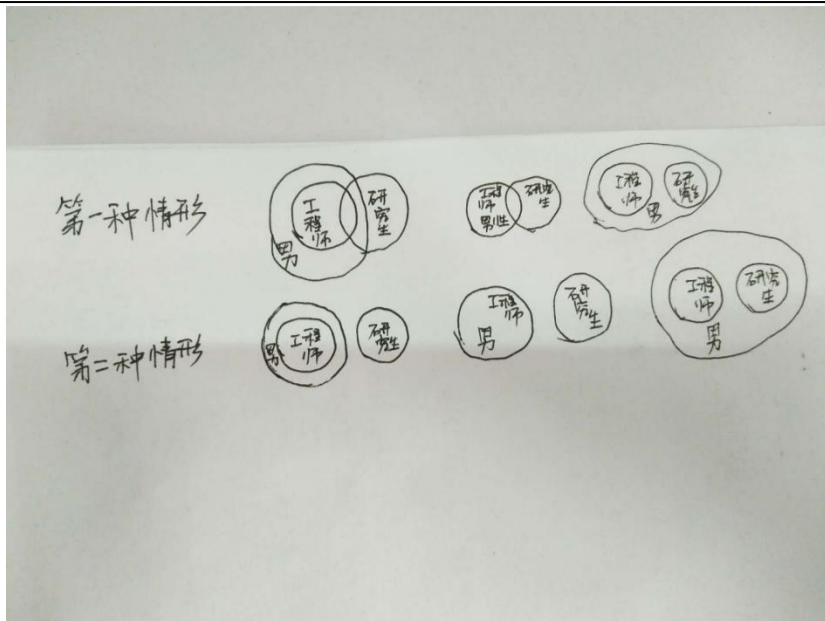 第一种情形
工程师
研究生
男
工程师
男性
研究生
工程师
研究生
男
第二种情形
男
工程师
研究生
工程师
男
研究生
工程师
研究生
男